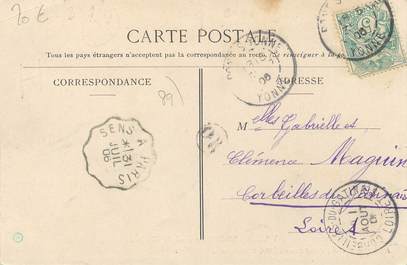 20 €
CARTE POSTALE
Tous les pays étrangers n'acceptent pas la correspondance au recto. (Se renseigner à la
CORRESPONDANCE
ADRESSE
89)
YONNE
YONNE
Melles Gabrielle et
Clémence Maguin
Corbeilles du Gatinais
Loiret
SENS A PARIS
*1 31
JUIL
06
AOUT
LOIRET